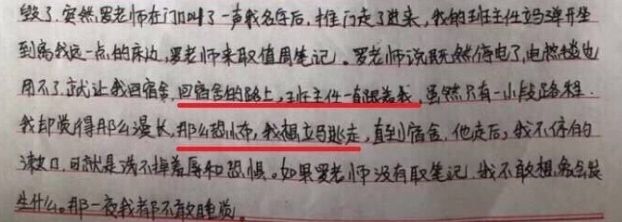 毁了. 突然罗老师在门口叫了一声我名字后，推门走了进来，我的班主任立马弹开坐
到离我远一点的床边，罗老师来取值周笔记。罗老师说既然停电了，电热毯也
用不了.就让我回宿舍，回宿舍的路上，班主任一直跟着我，虽然只有一小段路程.
我却觉得那么漫长，那么恐怖，我想立马逃走，直到宿舍.他走后，我不停的
漱口，可就是洗不掉羞辱和恐惧。如果罗老师没有取笔记.我不敢想象会发
生什么。那一夜我都不敢睡觉。